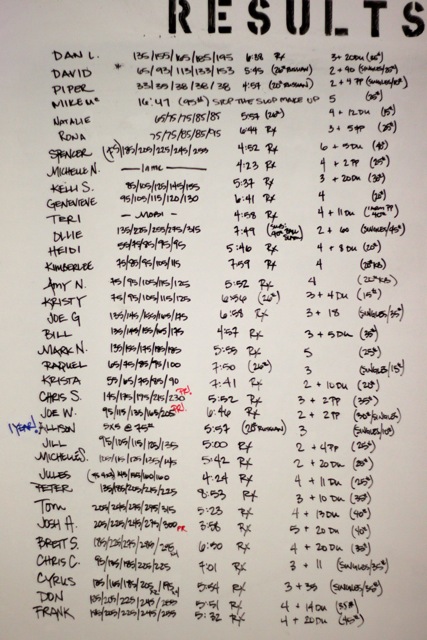 RESULTS
DAN L. 135/155/165/185/195 6:38 RX 3 + 20DU (35#)
DAVID * 65/93/113/133/153 5:45 2 + 40 (SINGLES/35#)
PIPER 33/35/38/38/38 4:57 2 + 4 PP
MIKE Mc 16:47 (95#) STOP THE SLOP MAKE UP 5 (35#)
NATALIE 65/75/75/85/85 5:57 (26#) 4 + 12DU (15#)
RONA 75/75/85/85/95 6:44 RX 3 + 5PP (25#)
SPENCER /185/205/225/245/255 4:52 RX 6 + 5DU
MICHELLE N. 4:23 RX 4 + 2 PP (25#)
KELLI S. 85/105/125/145/155 5:37 RX 3 + 20DU
GENEVIEVE 95/105/115/120/130 6:41 RX 4 (20#)
TERI — MOBI — 4:58 RX 4 + 11DU
OLLIE 135/235/255/275/315 7:49 2 + 60 (SINGLES/45#)
HEIDI 55/75/75/95/95 5:46 RX 4 + 8DU (20#)
KIMBERLEE 75/85/95/105/115 7:59 RX 4
AMY N. 75/95/105/115/125 5:52 RX 4
KRISTY 75/95/105/115/125 6:56 (26#) 3 + 4DU (15#)
JOE G 135/145/155/165/175 6:58 RX 3 + 18 (SINGLES/35#)
BILL 135/145/155/165/175 4:57 RX 3 + 5DU (35#)
MARK N. 135/155/175/185/185 5:55 RX 5 (25#)
RAQUEL 65/75/85/95/100 7:50 (26#) 3 (SINGLES/15#)
KRISTA 55/65/75/85/90 7:41 RX 2 + 10DU (20#)
CHRIS S. 145/175/175/215/230 PR! 5:52 RX 3 + 2PP (35#)
JOE W. 95/115/135/165/205 PR! 6:46 RX 2 + 2PP
1 YEAR! ALLISON 5X5 @ 45# 5:57 3
JILL 95/105/115/125/135 5:00 RX 2 + 4PP (25#)
MICHELLE S. 105/115/125/135/145 5:42 RX 2 + 20DU
JULES 4:24 RX 4 + 11DU (25#)
PETER 135/185/205/215/225 8:53 RX 3 + 10DU (35#)
TOM 205/245/275/295/315 5:23 RX 4 + 13DU (40#)
JOSH A. 205/225/245/275/300 PR 3:58 RX 5 + 20DU (40#)
BRETT S. 6:50 RX 4 + 20DU
CHRIS C. 7:01 RX 3 + 11 (SINGLES/35#)
CYRUS 5:54 RX 3 + 35 (SINGLES/35#)
DON 5:51 RX 4 + 14DU
FRANK 5:32 RX 4 + 20DU (45#)